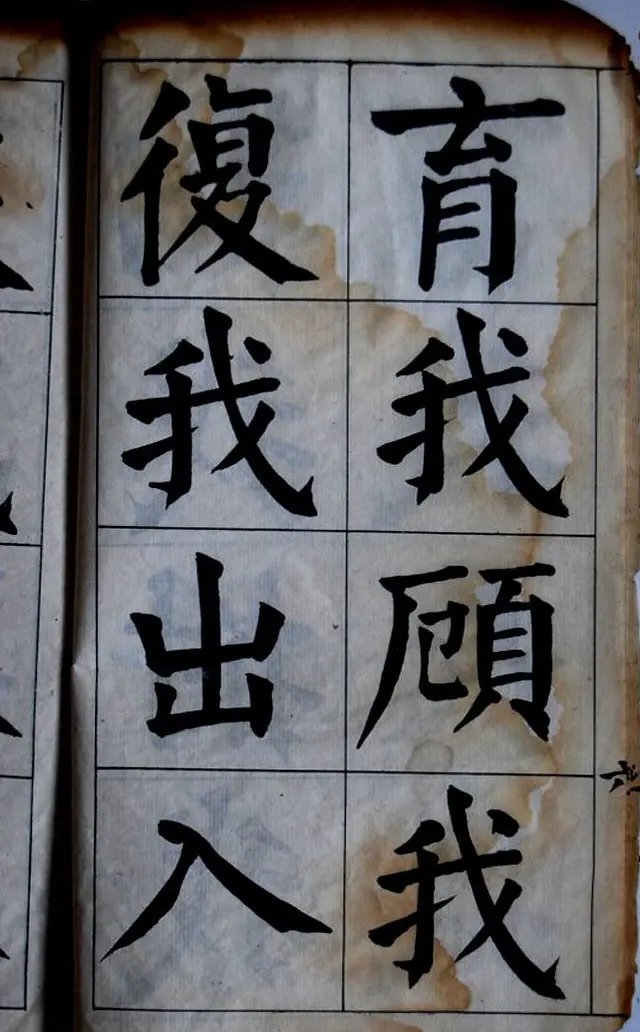 育我顧我
復我出入